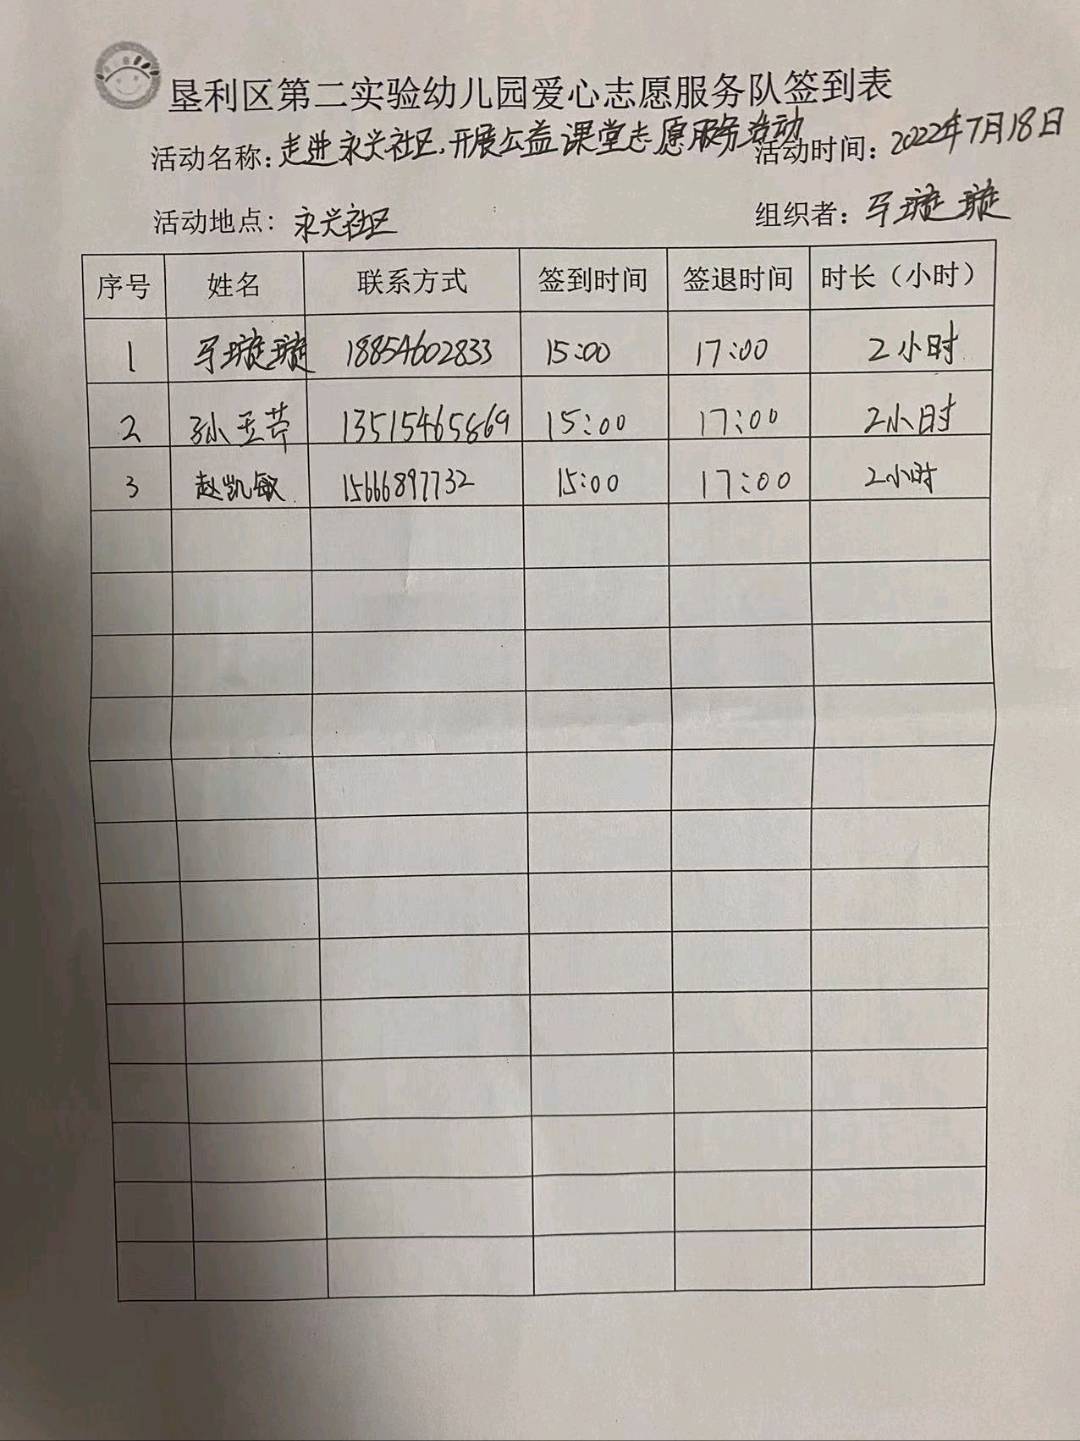 垦利区第二实验幼儿园爱心志愿服务队签到表
活动名称：走进永兴社区，开展公益课堂志愿服务活动 活动时间：2022年7月18日
活动地点：永兴社区 组织者：马璇璇
序号 姓名 联系方式 签到时间 签退时间 时长（小时）
1 马璇璇 18854602833 15:00 17:00 2小时
2 孙玉芹 13515465869 15:00 17:00 2小时
3 赵凯敏 15666897732 15:00 17:00 2小时